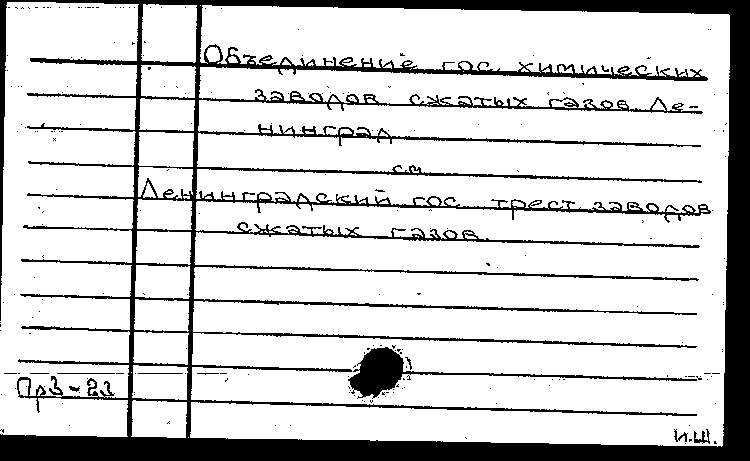 Объединение гос. химических
заводов сжатых газов. Ле-
нинград
см.
Ленинградский гос. трест заводов
сжатых газов.
Пр3-23
И.Ш.